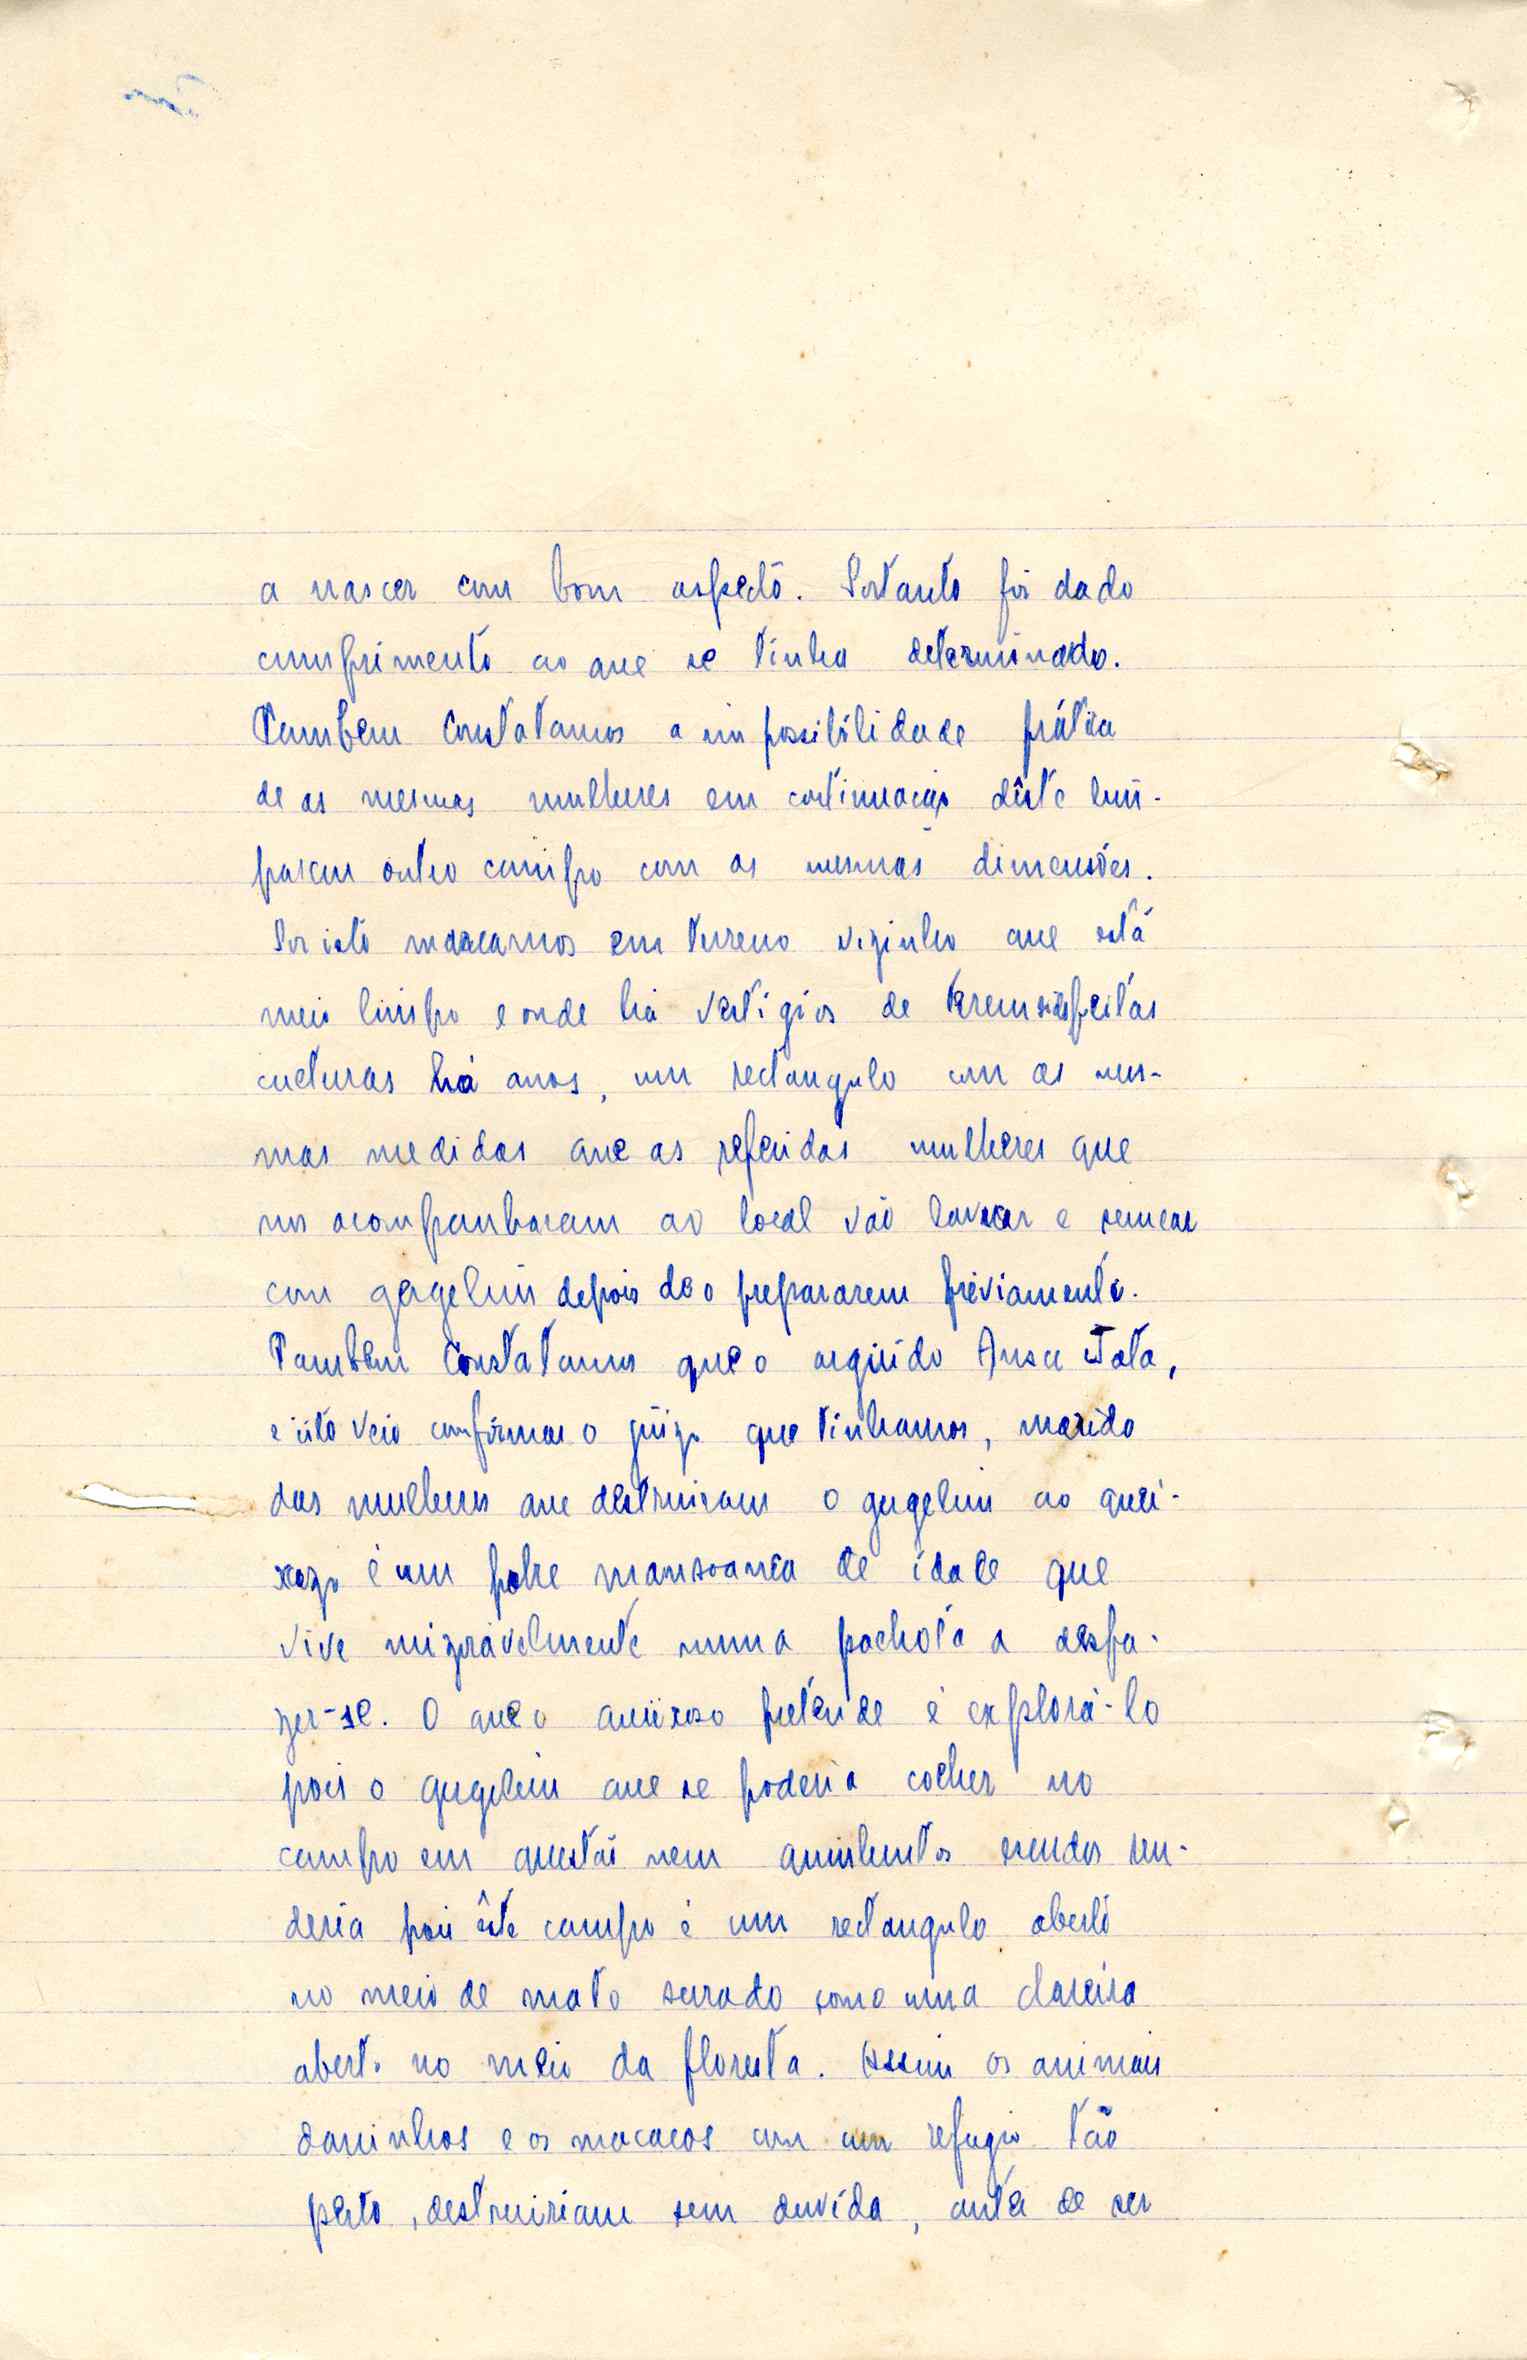 a nascer com bom aspecto. Portanto foi dado
cumprimento ao que se tinha determinado.
Também constatamos a impossibilidade prática
de as mesmas mulheres em continuação dêste lim-
parem outro campo com as mesmas dimensões.
Por isto marcamos em terreno vizinho que está
meio limpo e onde há vestigios de terem sido feitas
culturas há anos, um rectangulo com as mes-
mas medidas que as referidas mulheres que
nos acompanharam ao local vão lavrar e semear
com gergelim depois de o prepararem préviamente.
Também constatamos que o arguido Ansu Jata,
e isto veio confirmar o juizo que tinhamos, marido
das mulheres que destruiram o gergelim ao quei-
xoso é um pobre mansoanca de idade que
vive mizeravelmente numa pachota a desfa-
zer-se. O que o queixoso pretende é explorá-lo
pois o gergelim que se poderia colher no
campo em questão nem quinhentos escudos ren-
deria pois êste campo é um rectangulo aberto
no meio de mato serrado como uma clareira
aberta no meio da floresta. Assim os animais
daninhos e os macacos com um refugio tão
perto, destruiriam sem duvida, antes de ser